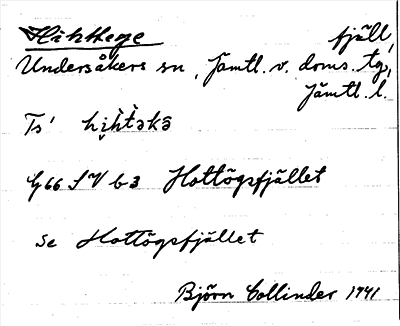 Hihttege fjäll,
Undersåkers sn, Jämtl. v. doms. tg,
Jämtl. l.
Ts'
G66 SV b3 Hottögsfjället
se Hottögsfjället
Björn Collinder 1941